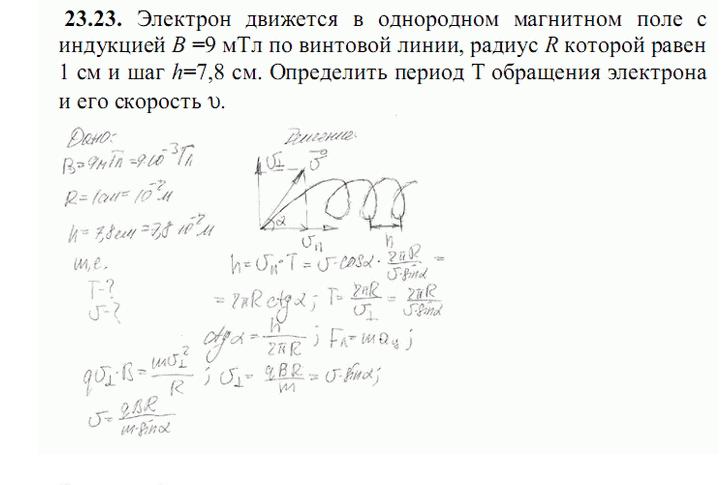 23.23. Электрон движется в однородном магнитном поле с
индукцией B =9 мТл по винтовой линии, радиус R которой равен
1 см и шаг h=7,8 см. Определить период T обращения электрона
и его скорость υ.
Дано:
B=9мТл=9·10⁻³Тл
R=1см=10⁻²м
h=7,8см=7,8·10⁻²м
m,e.
T-?
υ-?
Решение:
υ⊥ υ
α
υ∥ h
h=υ∥·T=υ·cosα·2πR/υ·sinα=
=2πRctgα; T=2πR/υ⊥=2πR/υ·sinα
ctgα=h/2πR; Fл=maц;
qυ⊥·B=mυ⊥²/R; υ⊥=qBR/m=υ·sinα;
υ=qBR/m·sinα